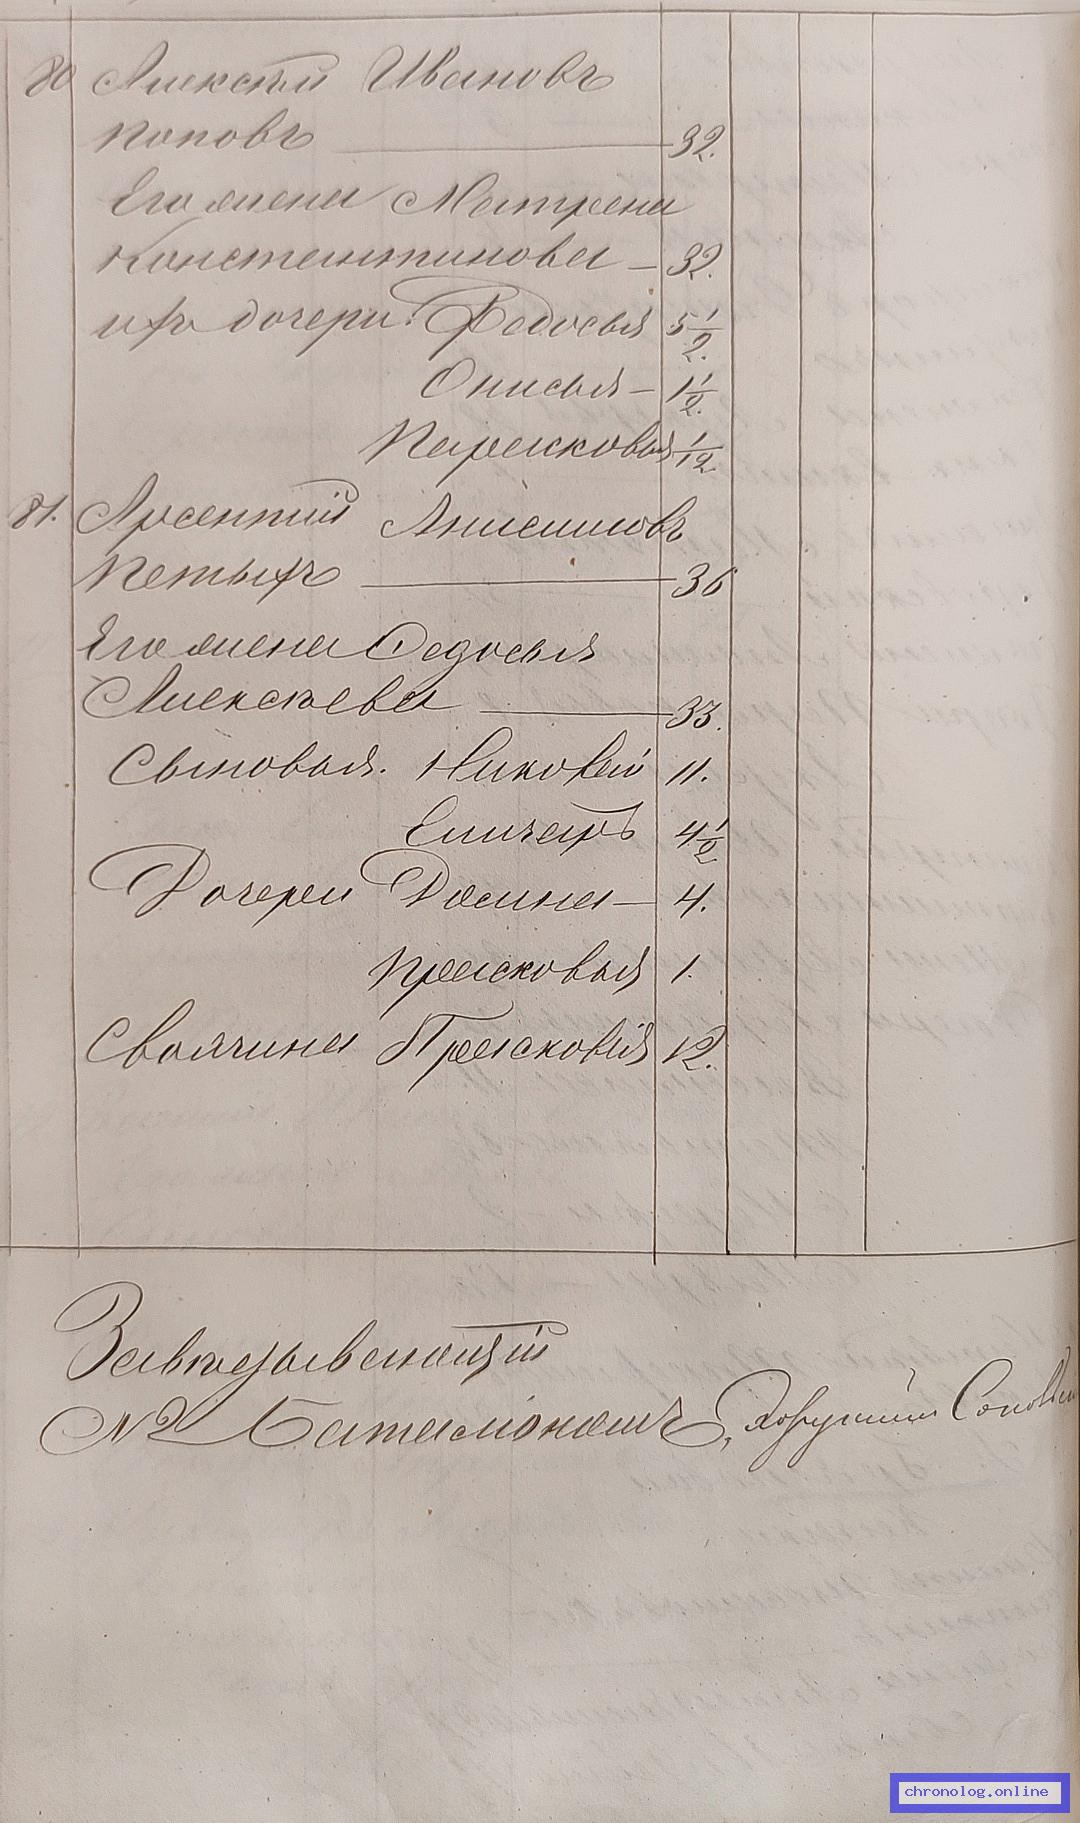 80 Алексѣй Ивановъ
Поповъ — 32.
Его жена Матрена
Константинова — 32.
ихъ дочери: Федосья 5 1/2.
Онисья — 1 1/2.
Парасковья 1/12
81. Арсентій Анисимовъ
Петыхъ — 36
Его жена Федосья
Алексѣева — 33.
Сыновья. Никофей 11.
Епихатъ 4 1/2
Дочери Домна — 4.
Прасковья 1.
Своячина Прасковія 12.
Завѣдывающій
№ 2 Баталіономъ, Хорунжій
chronolog.online